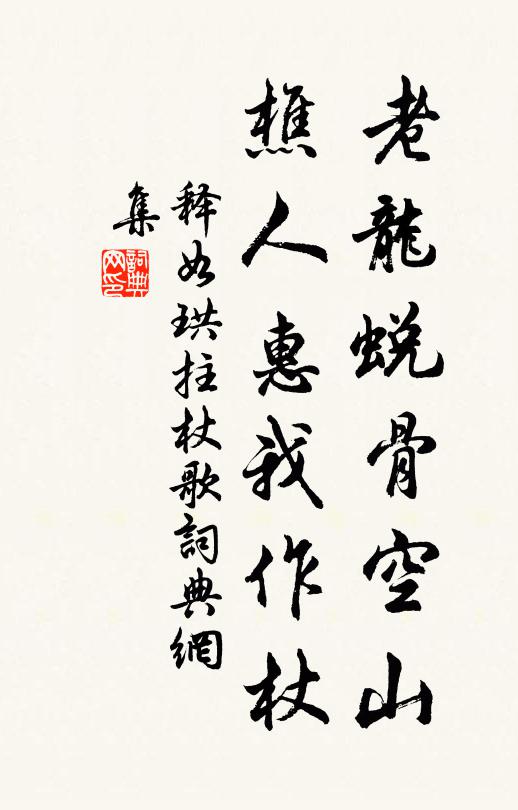 老龍蜕骨空山
樵人惠我作杖
释如珙拄杖歌詞典網
集
詞典网印